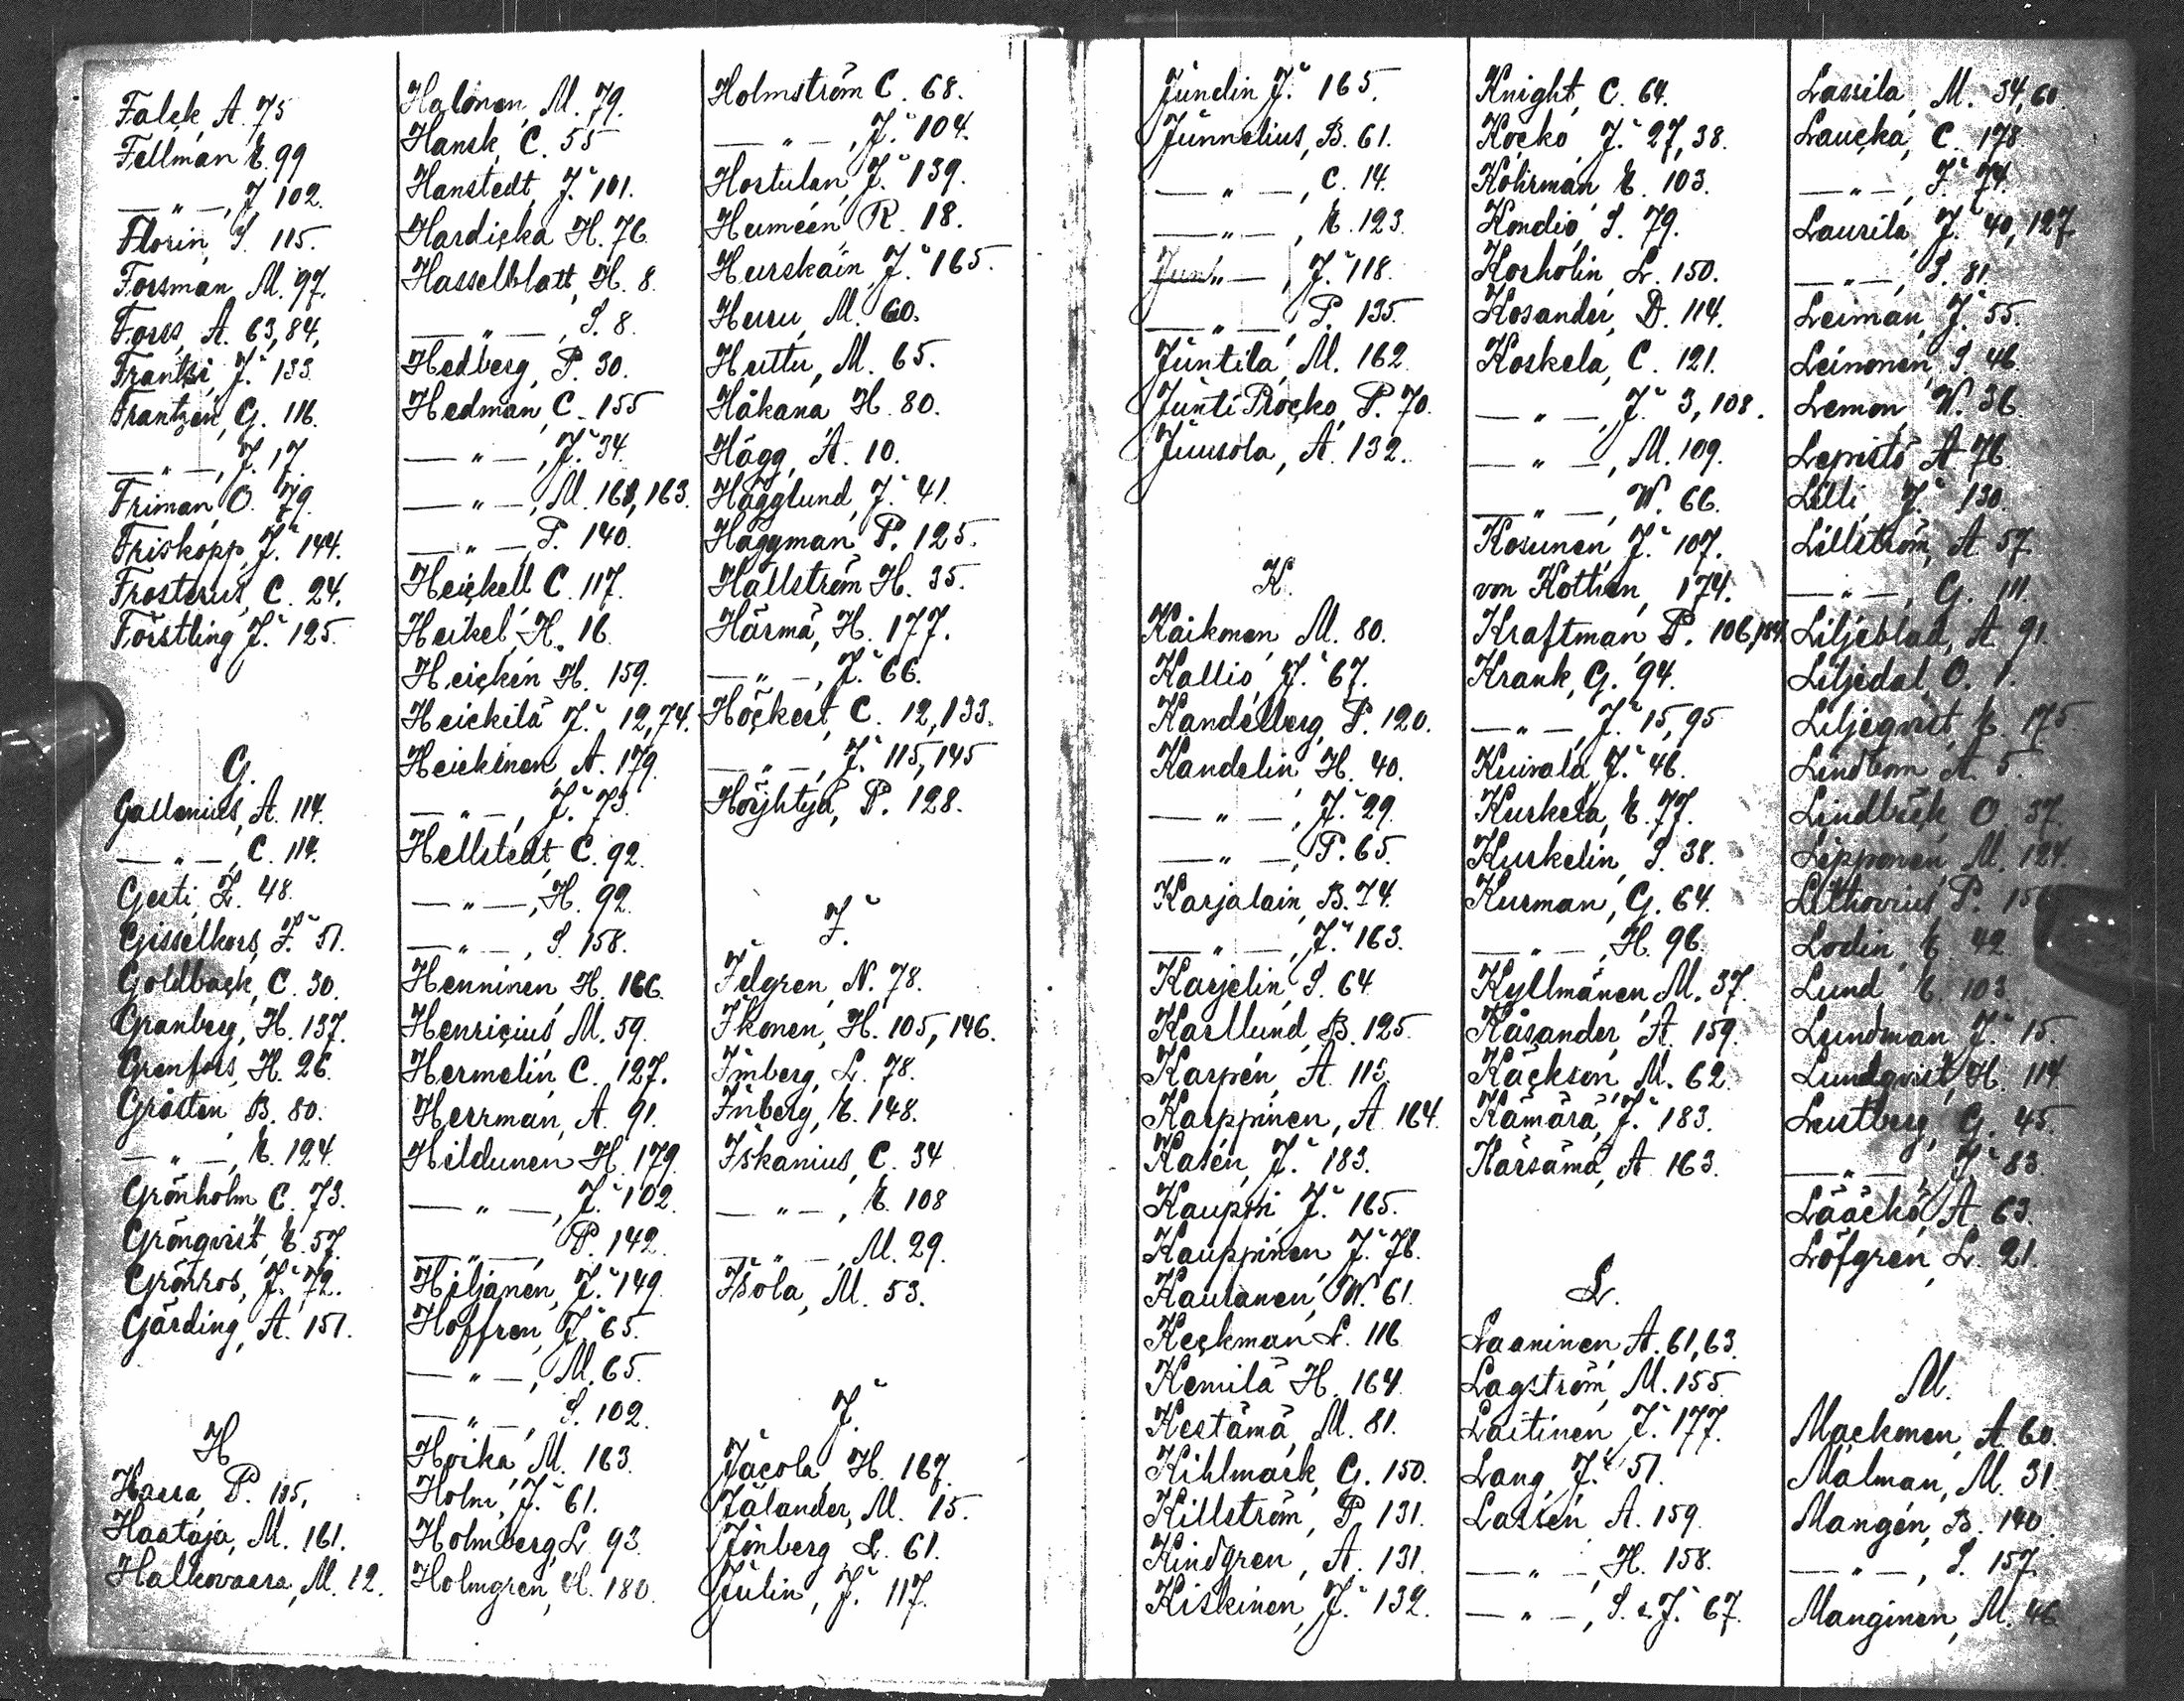 Falck, A. 75
Fellman, E. 99
— „ —, J. 102.
Florin, S. 115.
Forsman, M. 97.
Forss, A. 63, 84,
Frantsi, J. 133.
Frantzén, G. 116.
— „ —, J. 17.
Friman, O. 79.
Friskopp, J. 144.
Frosterus, C. 24.
Förstling J. 125.
G.
Gallenius, A. 114.
— „ —, C. 114.
Gerti, Z. 48.
Gisselkors, J. 51.
Goldback, C. 30.
Granberg, H. 137.
Grenfors, H. 26.
Grösten, B. 80.
— „ —, E. 124.
Grönholm, C. 73.
Grönqvist, E. 57.
Grönros, J. 72.
Gärding, A. 151.
H
Haara, P. 105,
Haataja, M. 161.
Halkovaara, M. 12.
Halonen, M. 79.
Hansk, C. 55
Hanstedt, J. 101.
Hardicka H. 76.
Hasselblatt, H. 8.
— „ —, S. 8.
Hedberg, P. 30.
Hedman, C. 155
— „ —, J. 34.
— „ —, M. 163.
— „ —, P. 140.
Heickell C. 117.
Heikel, H. 16.
Heickén H. 159.
Heickilä J. 12, 74.
Heickinen, A. 179.
— „ —, J. 73.
Hellstedt, C. 92.
— „ —, H. 92.
— „ —, S. 158.
Henninen, H. 166.
Henricius, M. 59.
Hermelin, C. 127.
Herrman, A. 91.
Hildunen H. 179.
— „ —, J. 102.
— „ —, P. 142.
Hiljanen, J. 149.
Hoffren, J. 65.
— „ —, M. 65.
— „ —, S. 102.
Hoika, M. 163.
Holm, J. 61.
Holmberg, L. 93.
Holmgren, H. 180.
Holmström C. 68.
— „ —, J. 104.
Hostulan, J. 139.
Huméen R. 18.
Hurskain, J. 165.
Huru, M. 60.
Huttu, M. 65.
Håkana, H. 80.
Hägg, A. 10.
Hägglund, J. 41.
Häggman, P. 125.
Hällström H. 35.
Härmä, H. 177.
— „ —, J. 66.
Höckert, C. 12, 133.
— „ —, J. 115, 145
Höyhtyä, P. 128.
I.
Idgren, N. 78.
Ikonen, H. 105, 146.
Imberg, L. 78.
Inberg, E. 148.
Iskanius, C. 34
— „ —, E. 108
— „ —, M. 29.
Isola, M. 53.
J.
Jacola, H. 167.
Jålander, M. 15.
Jönberg L. 61.
Julin, J. 117.
Jundin J. 165.
Junnelius, B. 61.
— „ —, C. 14.
— „ —, E. 123.
— „ —, J. 118.
— „ —, P. 135.
Juntila, M. 162
Junti Procko, P. 70.
Juusola, A. 132.
K.
Kaikmen, M. 80.
Kallio, J. 67.
Kandelberg, P. 120.
Kandelin, H. 40.
— „ —, J. 29.
— „ —, P. 65.
Karjalain, B. 74.
— „ —, J. 163.
Karjelin, S. 64
Karllund, B. 125.
Karpén, A. 115.
Karppinen, A. 164.
Kasén, J. 183.
Kauppi J. 165.
Kauppinen J. 76.
Kauranen, W. 61.
Keckman L. 116
Kemilä H. 164.
Kestämä, M. 81.
Kihlmark, G. 150.
Killström, P. 131.
Kindgren, A. 131.
Kiskinen, J. 132.
Knight, C. 64.
Kocko, J. 27, 38.
Kohrman, E. 103.
Kondio, S. 79.
Korholin, L. 150.
Kosander, D. 114.
Koskela, C. 121.
— „ —, J. 3, 108.
— „ —, M. 109.
— „ —, W. 66.
Kosunen, J. 107.
von Kothen, 174.
Kraftman, P. 106,
Krank, G. 94.
— „ —, J. 15, 95
Kuivala, J. 46.
Kurkela, E. 77.
Kurkelin, S. 38.
Kurman, G. 64.
— „ —, H. 96.
Kyllmänen M. 37.
Kåsander, A. 159.
Käckson, M. 62.
Kämärä, J. 183.
Kärsämä, A. 163.
L.
Laaninen, A. 61, 63.
Lagström, M. 155
Laitinen, J. 177.
Lang, J. 51.
Lassén A. 159.
— „ —, H. 158.
— „ —, S. & J. 67.
Lassila, M. 34, 60
Laucka, C. 178
— „ —, J. 74.
Laurila, J. 40, 127.
— „ —, S. 81.
Leiman, J. 55.
Leinonen, S. 46.
Lemon, W. 36.
Lepistö A. 76.
Lilli, J. 130.
Lillström, A. 57.
— „ —, G. 111.
Liljeblad, A. 91.
Liljedal, O. 1.
Liljeqvist, E. 175
Lindbom A. 5.
Lindbäck, O. 37.
Lipponen, M. 124.
Lithovius P.
Lodin, E. 42
Lund, E. 103.
Lundman, J. 15.
Lundqvist, H. 114.
Lustberg, G. 45.
— „ —, J. 83.
Lääckö, A. 63.
Löfgren, L. 21.
M.
Mackmen, A. 60.
Malman, M. 31.
Mangén, B. 140.
— „ —, S. 157.
Manginen, M. 46.